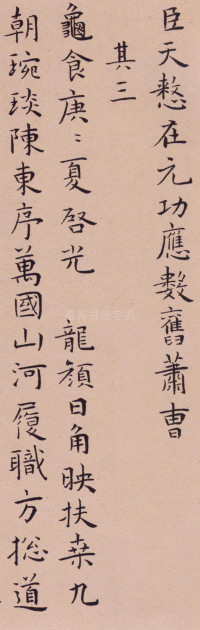 臣天憖在元功應數舊蕭曹
其三
龜食庚〻夏啓光 龍顏日角映扶桒九
朝琬琰陳東序萬國山河履職方揔道